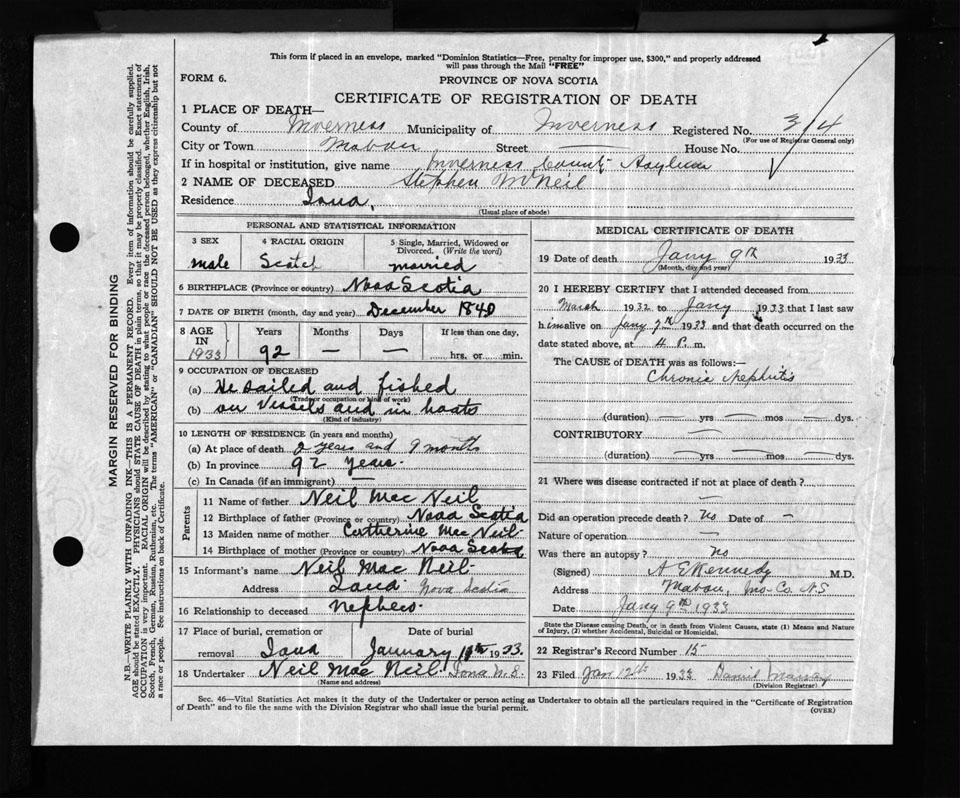 This form if placed in an envelope, marked "Dominion Statistics—Free, penalty for improper use, $300," and properly addressed
will pass through the Mail "FREE"
FORM 6.
PROVINCE OF NOVA SCOTIA
CERTIFICATE OF REGISTRATION OF DEATH
1 PLACE OF DEATH—
County of Inverness Municipality of Inverness Registered No. 314
(For use of Registrar General only)
City or Town Mabou Street — House No.
If in hospital or institution, give name Inverness County Asylum
2 NAME OF DECEASED Stephen McNeil
Residence Iona.
(Usual place of abode)
PERSONAL AND STATISTICAL INFORMATION
3 SEX 4 RACIAL ORIGIN 5 Single, Married, Widowed or Divorced. (Write the word)
male Scotch married
6 BIRTHPLACE (Province or country) Nova Scotia
7 DATE OF BIRTH (month, day and year) December 1840
8 AGE IN 1933 Years Months Days If less than one day,
92 — — hrs. or min.
9 OCCUPATION OF DECEASED
(a) He sailed and fished
(Trade or occupation or kind of work)
(b) on Vessels and in boats
(Kind of industry)
10 LENGTH OF RESIDENCE (in years and months)
(a) At place of death 2 years and 9 months
(b) In province 92 years.
(c) In Canada (if an immigrant) —
Parents
11 Name of father Neil Mac Neil
12 Birthplace of father (Province or country) Nova Scotia
13 Maiden name of mother Catherine Mac Neil
14 Birthplace of mother (Province or country) Nova Scotia
15 Informant's name Neil Mac Neil
Address Iona Nova Scotia
16 Relationship to deceased Nephew.
17 Place of burial, cremation or removal Iona Date of burial January 1933.
18 Undertaker Neil Mac Neil Iona N.S.
(Name and address)
MEDICAL CERTIFICATE OF DEATH
19 Date of death Jany 9th 1933
(Month, day and year)
20 I HEREBY CERTIFY that I attended deceased from
March 1932 to Jany 1933 that I last saw
him alive on Jany 9th 1933 and that death occurred on the
date stated above, at 4 P. m.
The CAUSE OF DEATH was as follows:—
Chronic Nephritis
(duration) — yrs — mos — dys.
CONTRIBUTORY —
(duration) — yrs — mos — dys.
21 Where was disease contracted if not at place of death?
—
Did an operation precede death? No Date of —
Nature of operation —
Was there an autopsy? No
(Signed) A E Kennedy M.D.
Address Mabou, Inv. Co. N.S.
Date Jany 9th 1933
State the Disease causing Death, or in death from Violent Causes, state (1) Means and Nature
of Injury, (2) whether Accidental, Suicidal or Homicidal.
22 Registrar's Record Number 15
23 Filed Jan 12th 1933 Daniel
(Division Registrar)
Sec. 46—Vital Statistics Act makes it the duty of the Undertaker or person acting as Undertaker to obtain all the particulars required in the "Certificate of Registration
of Death" and to file the same with the Division Registrar who shall issue the burial permit. (OVER)
MARGIN RESERVED FOR BINDING
N.B.—WRITE PLAINLY WITH UNFADING INK—THIS IS A PERMANENT RECORD. Every item of information should be carefully supplied.
AGE should be stated EXACTLY. PHYSICIANS should STATE CAUSE OF DEATH in plain terms, so that it may be properly classified. Exact statement of
OCCUPATION is very important. RACIAL ORIGIN will be described by stating to what people or race the deceased person belonged, whether English, Irish,
Scotch, French, German, Russian, Ruthenian, etc. The terms "AMERICAN" or "CANADIAN" SHOULD NOT BE USED as they express citizenship but not
a race or people. See instructions on back of Certificate.